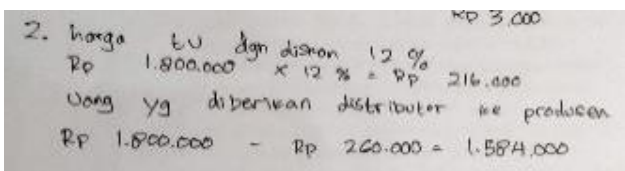 Rp 3.000
2. harga tv dgn diskon 12 %
Rp 1.800.000 x 12 % = Rp 216.000
Uang yg diberikan distributor ke produsen
Rp 1.800.000 - Rp 260.000 = 1.584.000